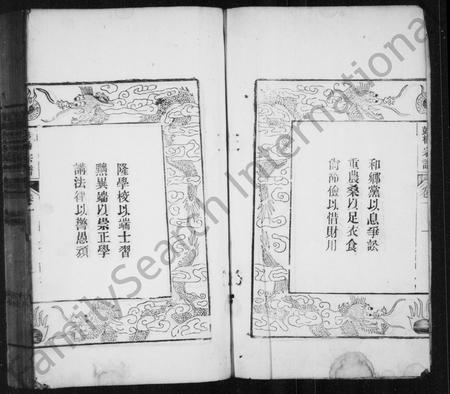 和鄉黨以息爭訟
重農桑以足衣食
尙節儉以惜財用
隆學校以端士習
黜異端以崇正學
講法律以儆愚頑
FamilySearch International